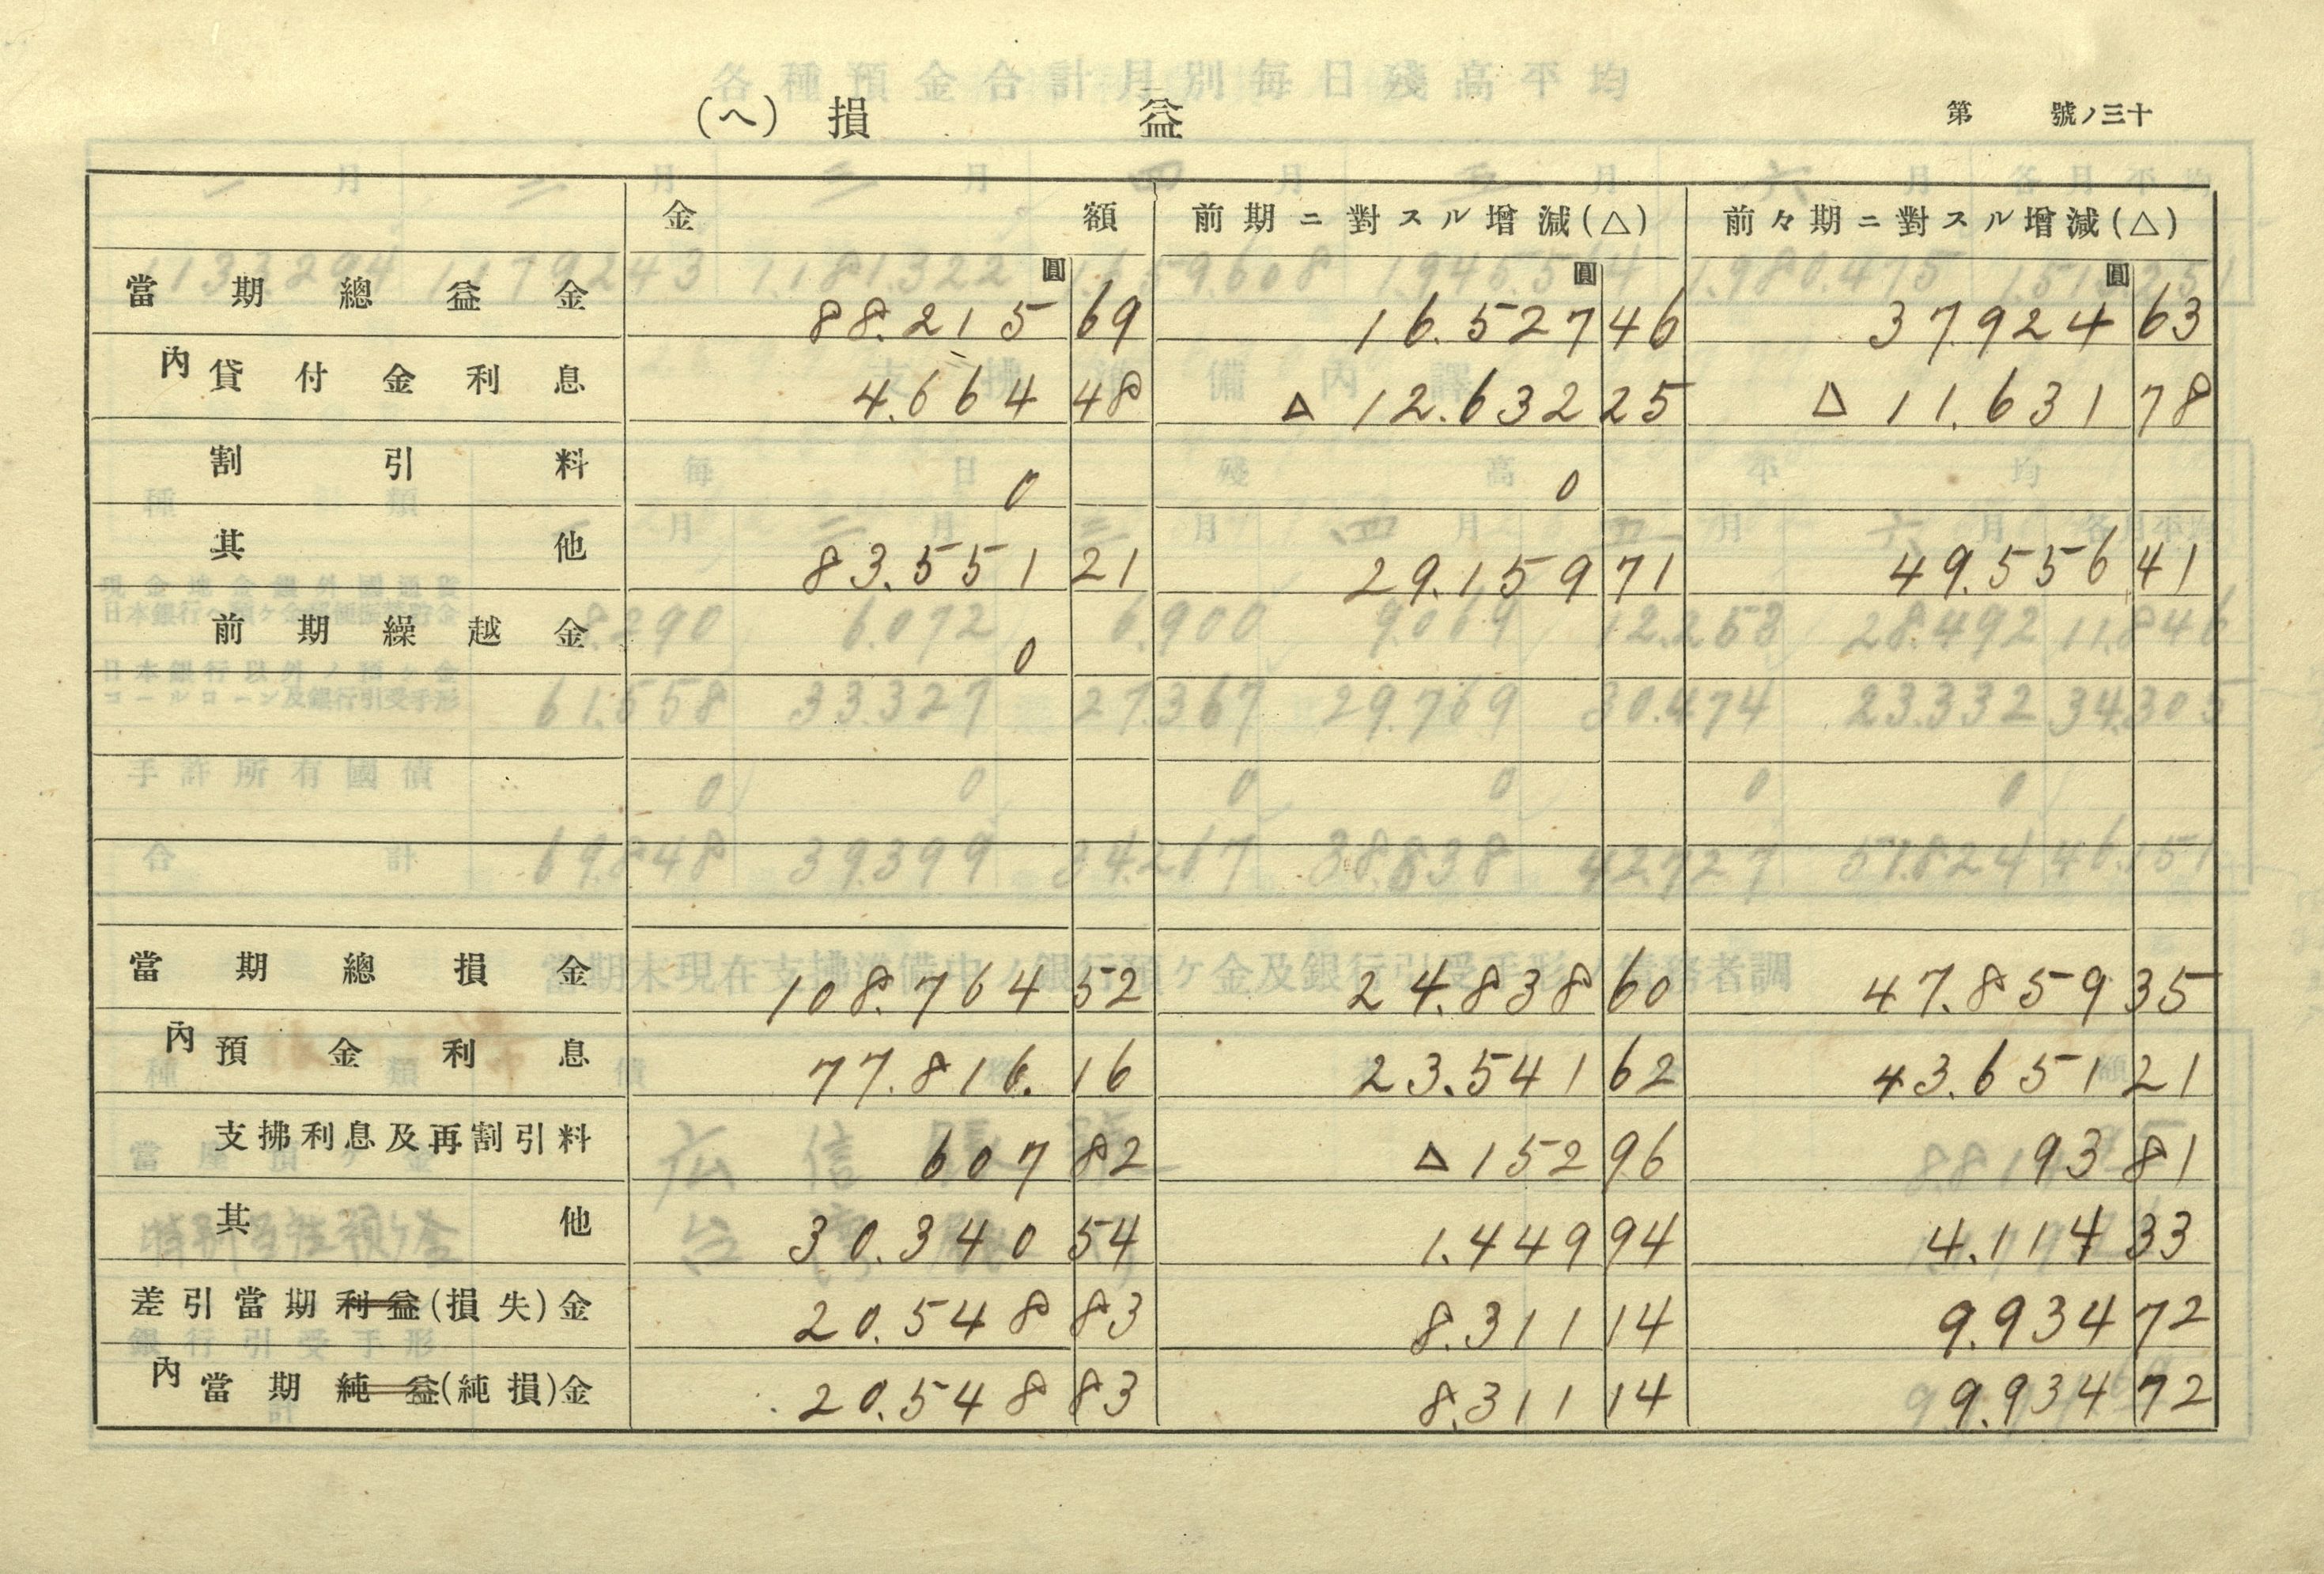 (ヘ) 損益 第 號ノ三十
金額 前期ニ對スル增減(△) 前々期ニ對スル增減(△)
圓 圓 圓
當期總益金 88.215 69 16.527 46 37.924 63
內貸付金利息 4.664 48 △ 12.632 25 △ 11.631 78
割引料 0 0
其他 83.551 21 29.159 71 49.556 41
前期繰越金 0
當期總損金 108.764 52 24.838 60 47.859 35
內預金利息 77.816. 16 23.541 62 43.651 21
支拂利息及再割引料 607 82 △ 152 96 93 81
其他 30.340 54 1.449 94 4.114 33
差引當期利益(損失)金 20.548 83 8.311 14 9.934 72
內當期純益(純損)金 20.548 83 8.311 14 9.934 72